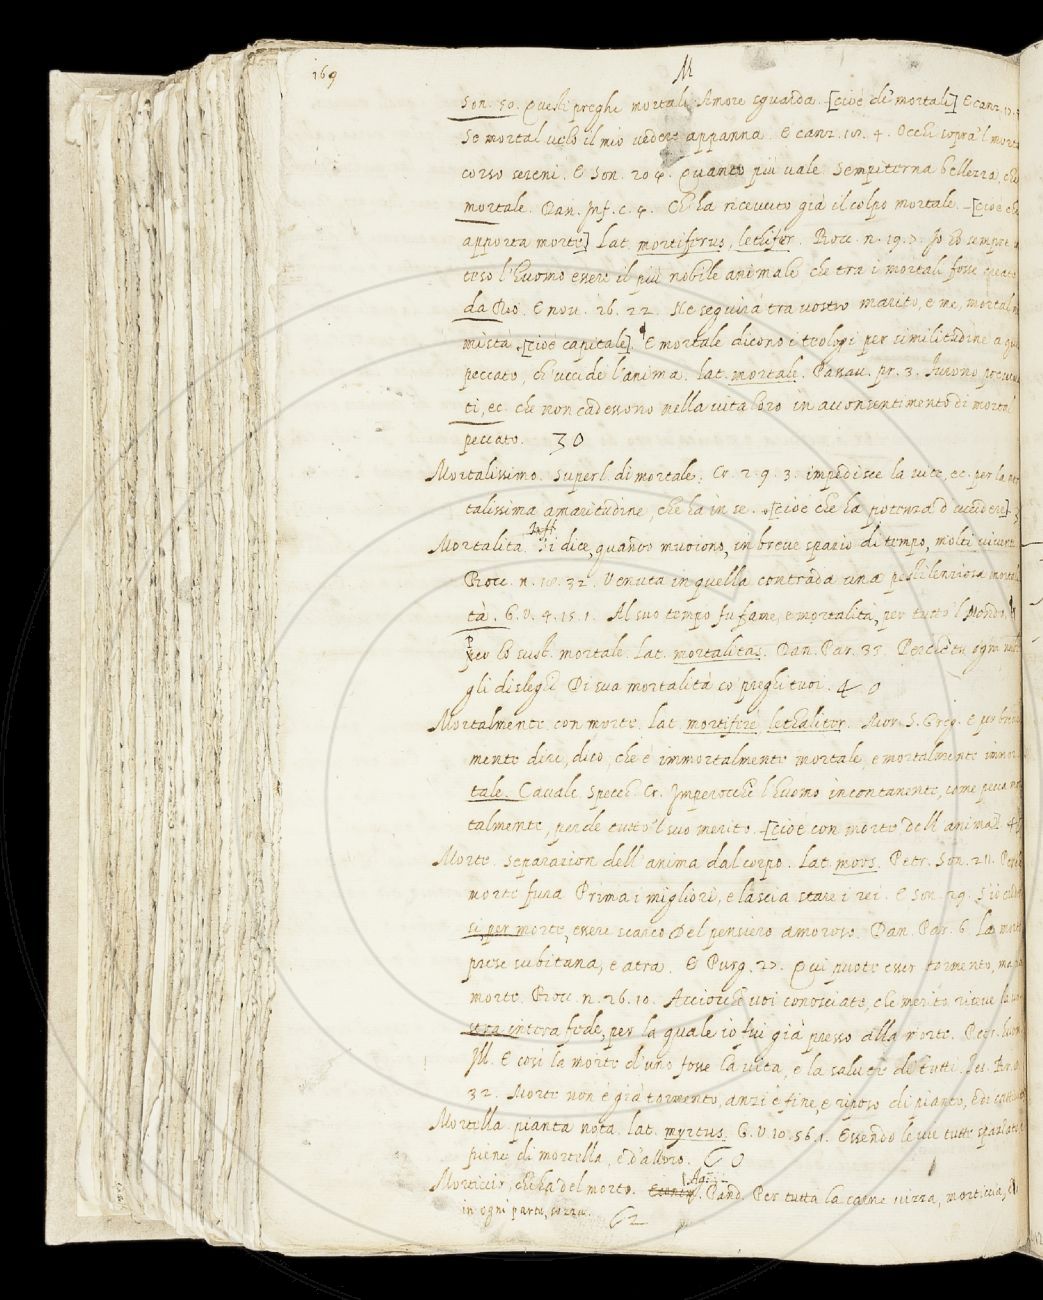 169
M
Son. 50. Questi preghi mortali Amore sguarda. [cioè de' mortali] E canz.
Se mortal velo il mio vedere appanna. E canz. 4. Occhi sopra'l mort
corso sereni. E Son. Quanto più vale Sempiterna bellezza, che
mortale. Dan. Inf. c. Ch'ha ricevuto già il colpo mortale. [cioè che
apporta morte] Lat. mortiferus, lethifer. Bocc. n. 19. Io ho sempre
teso l'huomo essere il più nobile animale che tra i mortali fosse
da Dio. E nov. 26. 22. Ne seguirà tra vostro marito, e me, mortal
mistà. [cioè capitale]. E mortale dicono i teologi per similitudine a
peccato, ch'uccide l'anima. Lat. mortale. Passav. pr. 3. Furono
ti, ec. che non cadessono nella vita loro in avonsentimento di mortal
peccato. 30
Mortalissimo. Superl. di mortale. Cr. 2. 9. 3. impedisce la vite, ec. per la
talissima amaritudine, che ha in se. [cioè che ha potenza d'uccidere].
Mortalità. Si dice, quando muoiono, in breve spazio di tempo, molti viventi
Bocc. n. 32. Venuta in quella contrada una pestilenziosa mortali
tà. G. V. 4. 15. 1. Al suo tempo fu fame, e mortalità, per tutto'l Mondo.
Per lo sust. mortale. Lat. mortalitas. Dan. Par. 33. Perchè tu ogni
gli disleghi Di sua mortalità co' preghi tuoi. 40
Mortalmente. con morte. Lat. mortiferè, lethaliter. Mor. S. Greg. E per
mente dire, dico, che è immortalmente mortale, e mortalmente immor
tale. Cavalc. Specch. Cr. Imperocchè l'huomo incontanente, come pecca
talmente, perde tutto'l suo merito. [cioè con morte dell'anima].
Morte. Separazion dell'anima dal corpo. Lat. mors. Petr. Son. 211.
morte fura Prima i migliori, e lascia stare i rei. E Son. 29. S'io
si per morte, essere scarco Del pensiero amoroso. Dan. Par. 6. La morte
prese subitana, e atra. E Purg. 27. Qui puote esser tormento, ma
morte. Bocc. n. 26. 10. Acciocchè voi conosciate, che merito riceve la
stra intera fede, per la quale io fui già presso alla morte.
Ill. E così la morte d'uno fosse la vita, e la salute di tutti.
32. Morte non è già tormento, anzi è fine, e riposo di pianto,
Mortella. pianta nota. Lat. myrtus. G. V. 10. 56. 1. Essendo le vie tutte
piene di mortella, e d'alloro. 60
Morticcio, ch'ha del morto. Pand. Per tutta la carne vizza, morticcia,
in ogni parte, sozza. 62